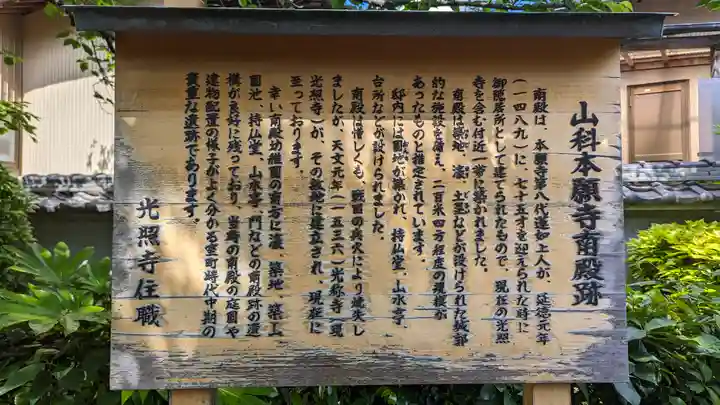 山科本願寺南殿跡
南殿は、本願寺第八代蓮如上人が、延徳元年
(一四八九)に、七十五才を迎えられた時に
御隠居所として建てられたもので、現在の光照
寺を含む付近一帯に築かれました。
南殿は築地、濠、土塁などが設けられた城郭
的な施設を備え、二百米四方程度の規模が
あったものと推定されています。
邸内には園地が築かれ、持仏堂、山水亭、
台所などが設けられました。
南殿は惜しくも、戦国の兵火により焼失し
ましたが、天文元年(一五三六)光称寺(現
光照寺)が、その故地に建立され、現在に
至っております。
幸い南殿幼稚園の南方に濠、築地、築山、
園池、持仏堂、山水亭、門などの南殿跡の遺
構が良好に残っており、当時の南殿の庭園や
建物配置の様子がよく分かる室町時代中期の
貴重な遺跡であります。
光照寺住職